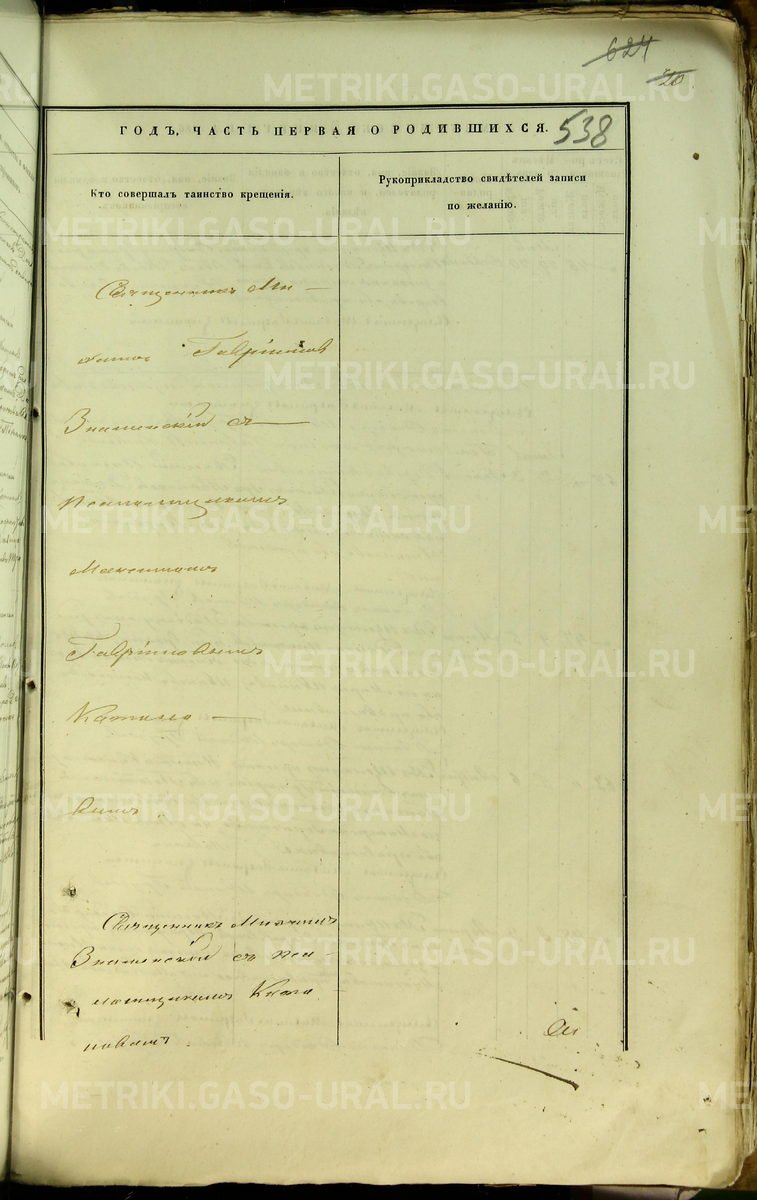 624
20
ГОДЪ, ЧАСТЬ ПЕРВАЯ О РОДИВШИХСЯ.
538
Кто совершалъ таинство крещенія.
Рукоприкладство свидѣтелей записи
по желанію.
Священникъ Ми–
Гавріиловъ
Знаменскій съ
Псаломщикомъ
Максимомъ
Гавріиловымъ
вымъ
Священникъ Михаилъ
Знаменскій съ пса–
ломщикомъ
METRIKI.GASO-URAL.RU